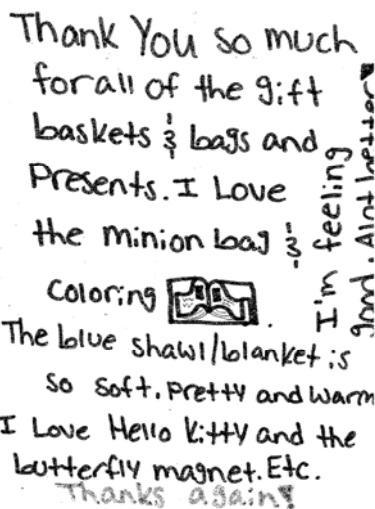 Thank You so much
for all of the gift
baskets & bags and
Presents. I Love
the minion bag &
coloring
The blue shawl/blanket is
so soft. Pretty and warm
I Love Hello Kitty and the
butterfly magnet. Etc.
Thanks again!
I'm feeling
good. Alot better